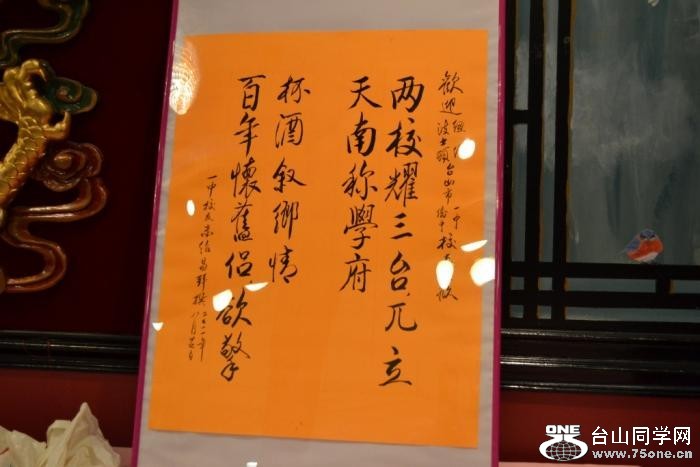 歡迎 纽约 波士頓 台山市 一中 僑中 校友
两校耀三台兀立
天南称學府
杯酒叙鄉情
百年懷舊侣欲擎
一中校友
撰 二〇一一年
八月
ONE
台山同学网
www.75one.cn